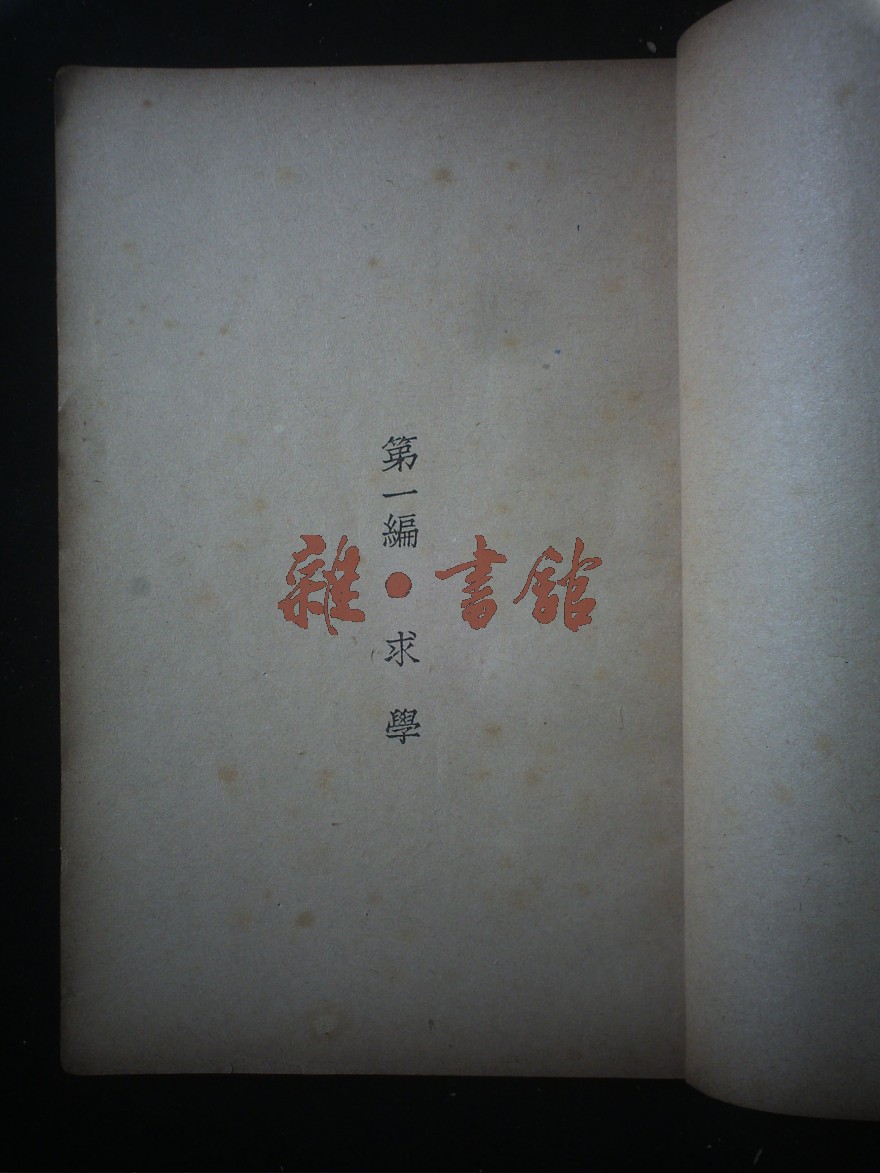 第一編 求學
雜·書館